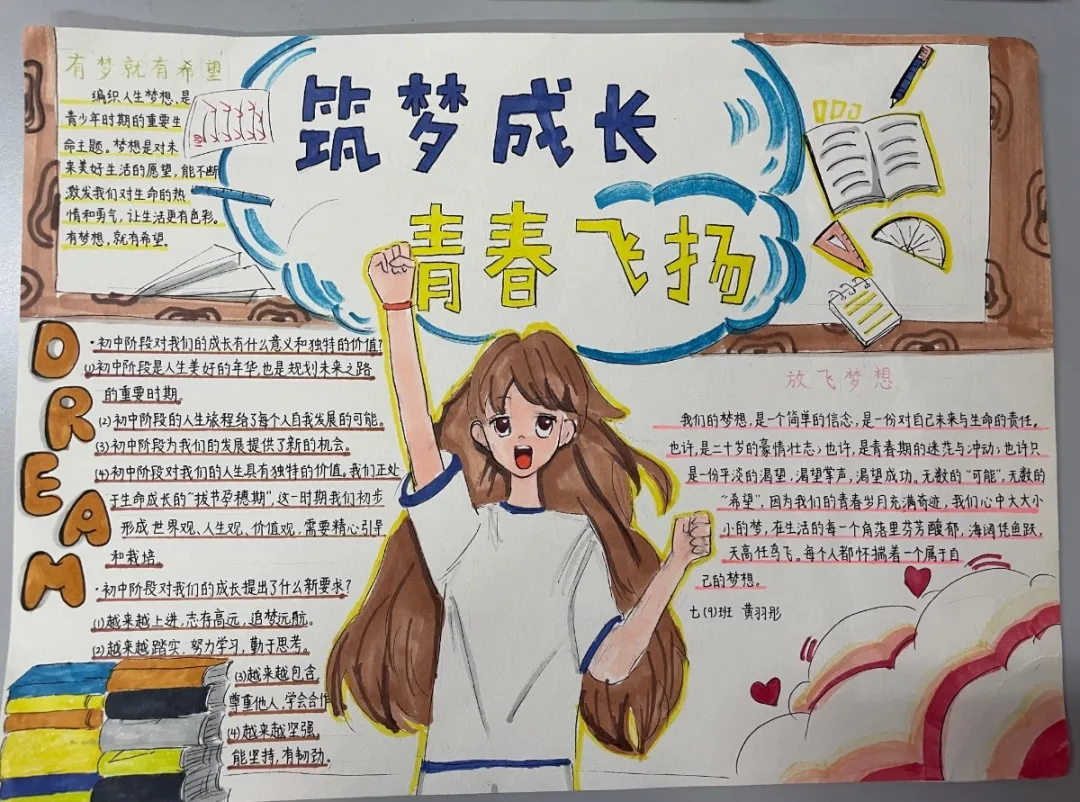 筑梦成长
青春飞扬
有梦就有希望
编织人生梦想,是
青少年时期的重要生
命主题。梦想是对未
来美好生活的愿望,能不断
激发我们对生命的热
情和勇气,让生活更有色彩。
有梦想,就有希望。
DREAM
·初中阶段对我们的成长有什么意义和独特的价值?
(1)初中阶段是人生美好的年华,也是规划未来之路
的重要时期。
(2)初中阶段的人生旅程给了每个人自我发展的可能。
(3)初中阶段为我们的发展提供了新的机会。
(4)初中阶段对我们的人生具有独特的价值。我们正处
于生命成长的“拔节孕穗期”,这一时期我们初步
形成世界观、人生观、价值观,需要精心引导
和栽培。
·初中阶段对我们的成长提出了什么新要求?
(1)越来越上进,志存高远,追梦远航。
(2)越来越踏实,努力学习,勤于思考。
(3)越来越包含,
尊重他人,学会合作
(4)越来越坚强,
能坚持,有韧劲。
放飞梦想
我们的梦想,是一个简单的信念,是一份对自己未来与生命的责任,
也许,是二十岁的豪情壮志;也许,是青春期的迷茫与冲动;也许只
是一份平淡的渴望,渴望掌声,渴望成功。无数的“可能”,无数的
“希望”,因为我们的青春岁月充满奇迹,我们心中大大小
小的梦,在生活的每一个角落里芬芳馥郁,海阔凭鱼跃,
天高任鸟飞。每个人都怀揣着一个属于自
己的梦想。
七(9)班 黄羽彤